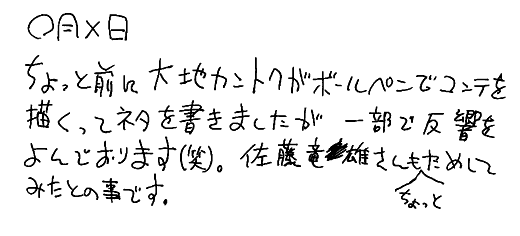 〇月×日
ちょっと前に大地カントクがボールペンでコンテを
描くってネタを書きましたが 一部で反響を
よんでおります(笑)。佐藤竜雄さんもちょっとためして
みたとの事です。